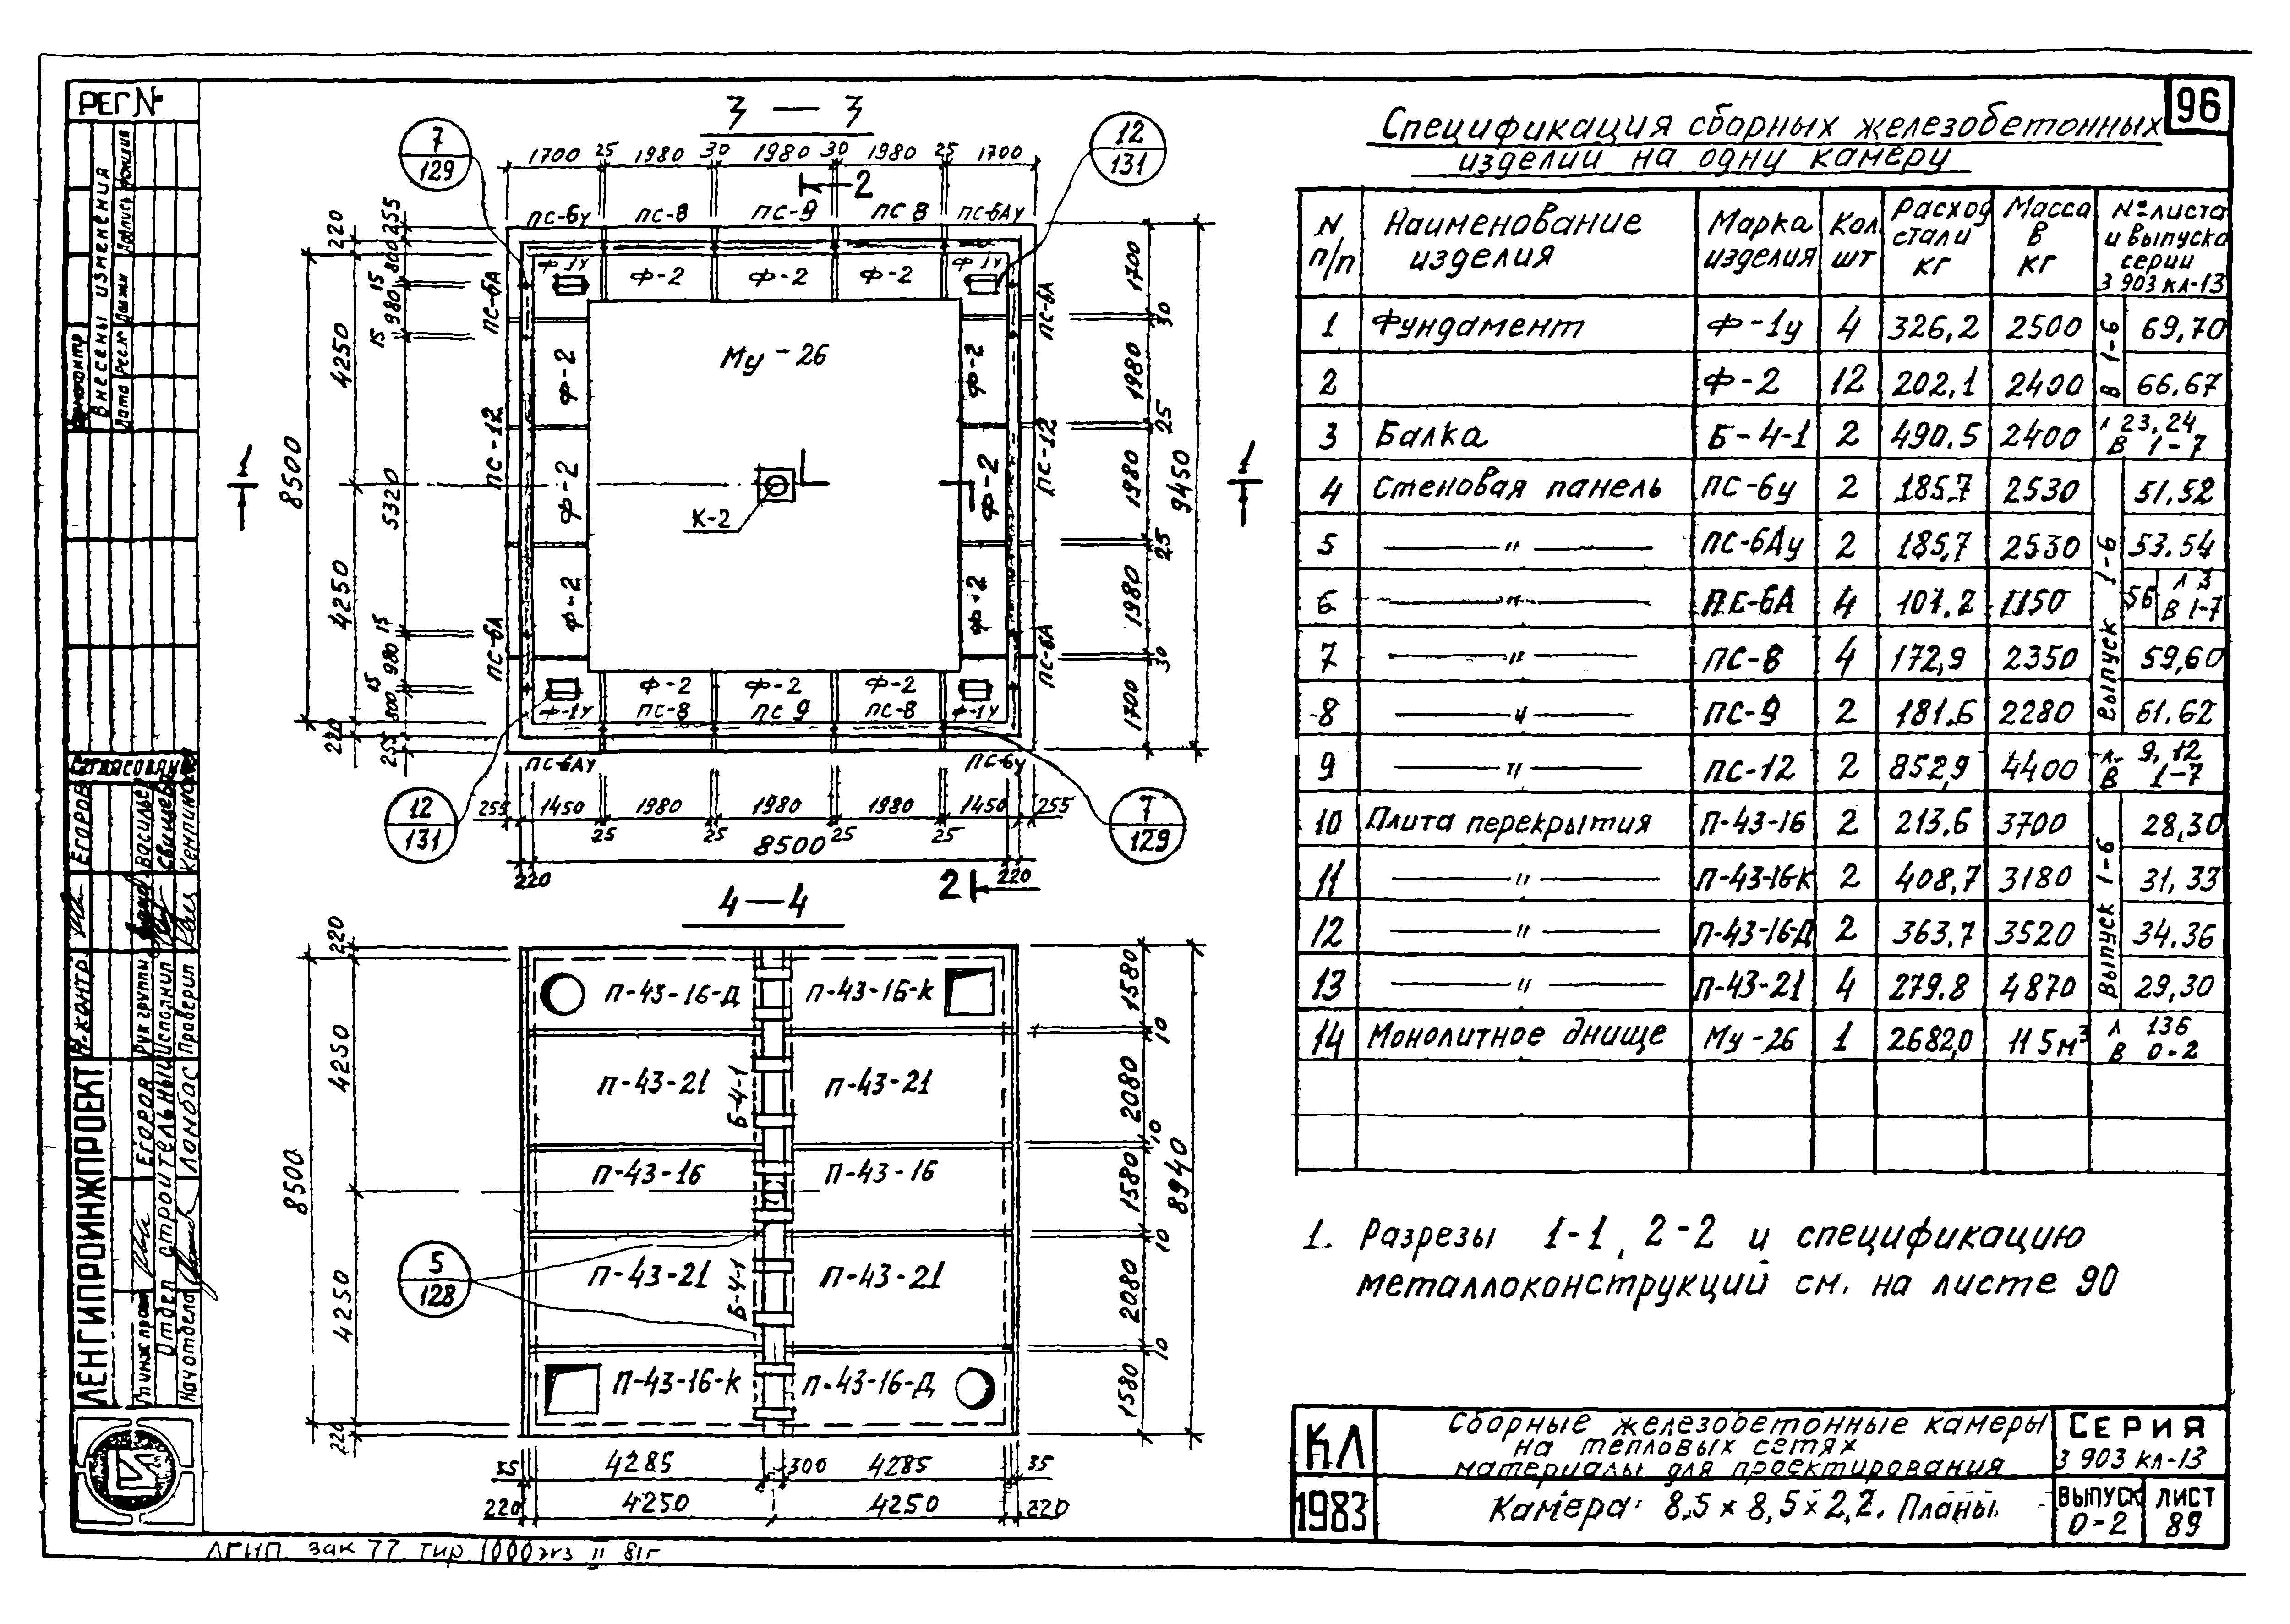 РЕГ №
96
3 — 3
7
129
12
131
1700 25 1980 30 1980 30 1980 25 1700
2
ПС-6у ПС-8 ПС-9 ПС 8 ПС-6Ау
Ф-1у Ф-2 Ф-2 Ф-2 Ф-1у
220 255
800
15
980
15
4250
8500
5320
4250
15
980
15
800
220
255
ПС-6А
ПС-12
ПС-6А
Ф-2
Ф-2
Ф-2
Му-26
К-2
Ф-2
Ф-2
Ф-2
ПС-6А
ПС-12
ПС-6А
1700
30
1980
25
1980
25
1980
30
1700
9450
1 1
Ф-2 Ф-2 Ф-2
Ф-1у ПС-8 ПС 9 ПС-8 Ф-1у
ПС-6Ау ПС-6у
12
131
7
129
255 1450 1980 1980 1980 1450 255
25 25 25 25
8500
220 220
2
4 — 4
220
4250
8500
4250
220
П-43-16-Д П-43-16-К
П-43-21 П-43-21
Б-4-1
П-43-16 П-43-16
П-43-21 П-43-21
Б-4-1
П-43-16-К П-43-16-Д
5
128
1580
10
2080
10
1580
10
2080
10
1580
8940
35 4285 300 4285 35
220 4250 4250 220
Спецификация сборных железобетонных
изделий на одну камеру
N п/п Наименование изделия Марка изделия Кол шт Расход стали кг Масса в кг № листа и выпуска серии 3 903 КЛ-13
1 Фундамент Ф-1у 4 326,2 2500 69,70
2 Ф-2 12 202.1 2400 66.67
В 1-6
3 Балка Б-4-1 2 490.5 2400 л 23.24 В 1-7
4 Стеновая панель ПС-6у 2 185.7 2530 51.52
5 —"— ПС-6Ау 2 185,7 2530 53.54
6 —"— ПС-6А 4 101.2 1150 56 л 3 В 1-7
7 —"— ПС-8 4 172,9 2350 59,60
8 —"— ПС-9 2 181.6 2280 61.62
Выпуск 1-6
9 —"— ПС-12 2 852,9 4400 л. 9, 12 В 1-7
10 Плита перекрытия П-43-16 2 213.6 3700 28,30
11 —"— П-43-16К 2 408,7 3180 31, 33
12 —"— П-43-16-Д 2 363.7 3520 34.36
13 —"— П-43-21 4 279.8 4870 29,30
Выпуск 1-6
14 Монолитное днище Му-26 1 2682,0 11 5м³ л 136 В 0-2
1. Разрезы 1-1, 2-2 и спецификацию
металлоконструкций см. на листе 90
КЛ
1983
Сборные железобетонные камеры
на тепловых сетях
материалы для проектирования
Камера 8.5 × 8,5 × 2,2. Планы
СЕРИЯ
3 903 КЛ-13
ВЫПУСК
0-2
ЛИСТ
89
Внесены изменения
Дата
Подпись
Согласовано
Н. контр. Егоров
Рук группы Васильев
Исполнил
Проверил
ЛЕНГИПРОИНЖПРОЕКТ
Гл инж проек Егоров
Отдел строительный
Нач отдела Ломбас
ЛГИП. зак 77 тир 1000 экз II 81г